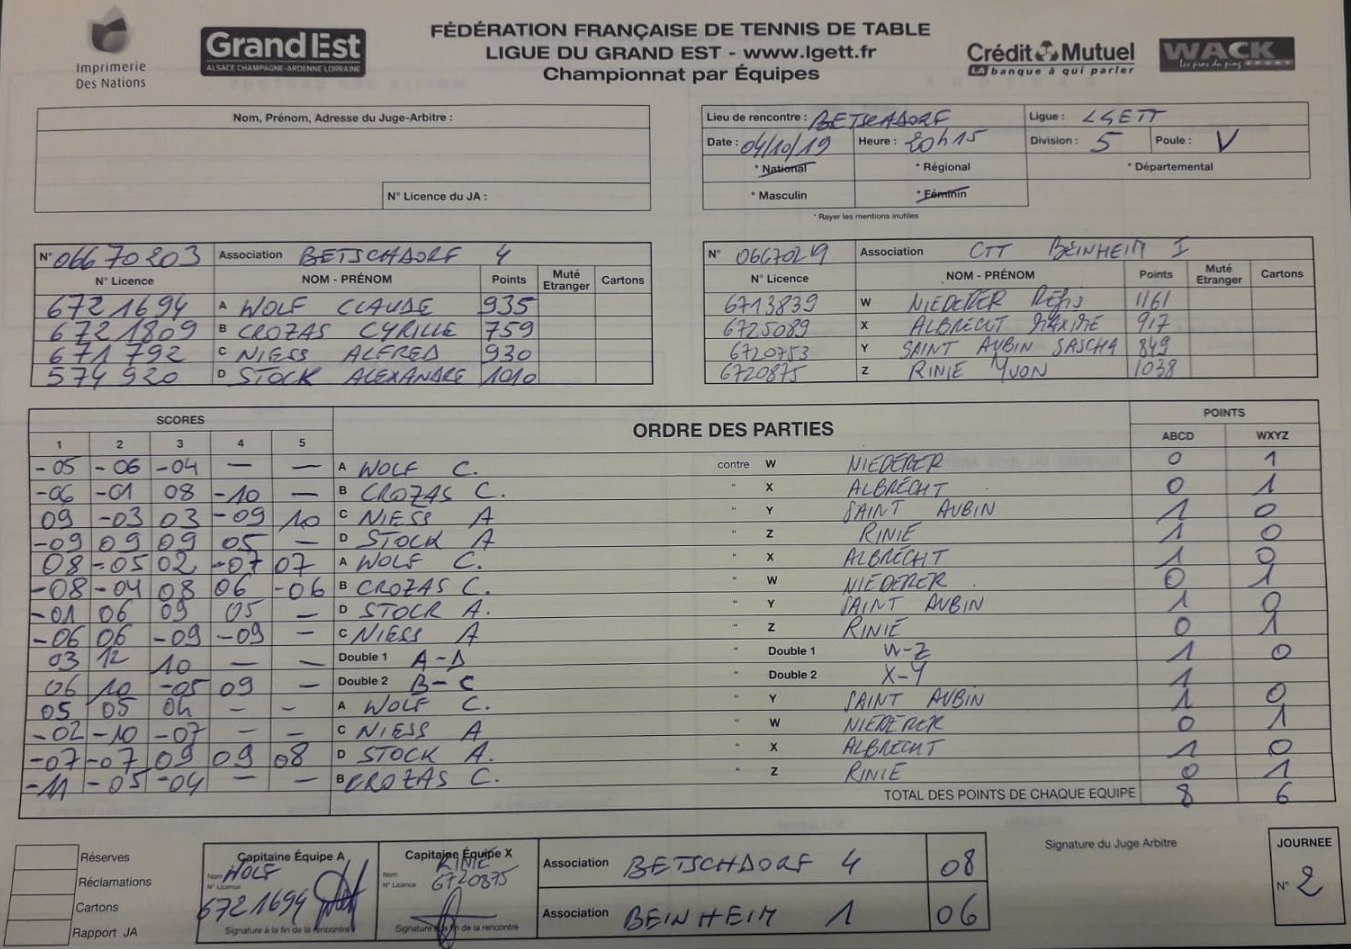 Imprimerie
Des Nations
Grand Est
ALSACE CHAMPAGNE-ARDENNE LORRAINE
FÉDÉRATION FRANÇAISE DE TENNIS DE TABLE
LIGUE DU GRAND EST - www.lgett.fr
Championnat par Équipes
Crédit Mutuel
LA banque à qui parler
WACK
Nom, Prénom, Adresse du Juge-Arbitre :
N° Licence du JA :
Lieu de rencontre : BETSCHDORF Ligue : LGETT
Date : 04/10/19 Heure : 20h15 Division : 5 Poule : V
* National * Régional * Départemental
* Masculin * Féminin
* Rayer les mentions inutiles
N° 06670203 Association BETSCHDORF 4
N° Licence NOM - PRÉNOM Points Muté Etranger Cartons
6721694 A WOLF CLAUDE 935
6721809 B CROZAS CYRILLE 759
671792 C NIESS ALFRED 930
574920 D STOCK ALEXANDRE 1010
N° 06670219 Association CTT BEINHEIM I
N° Licence NOM - PRÉNOM Points Muté Etranger Cartons
6713839 W NIEDERER Régis 1161
6725089 X ALBRECHT MAXIME 917
6720753 Y SAINT AUBIN SASCHA 849
6720875 Z RINIE YVON 1038
SCORES ORDRE DES PARTIES POINTS
1 2 3 4 5 ABCD WXYZ
-05 -06 -04 — — A WOLF C. contre W NIEDERER 0 1
-06 -01 08 -10 — B CROZAS C. " X ALBRECHT 0 1
09 -03 03 -09 10 C NIESS A " Y SAINT AUBIN 1 0
-09 09 09 05 — D STOCK A " Z RINIE 1 0
08 -05 02 -07 07 A WOLF C. " X ALBRECHT 1 0
-08 -04 08 06 -06 B CROZAS C. " W NIEDERER 0 1
-01 06 09 05 — D STOCK A. " Y SAINT AUBIN 1 0
-06 06 -09 -09 — C NIESS A " Z RINIE 0 1
03 12 10 — — Double 1 A-D " Double 1 W-Z 1 0
06 10 -05 09 — Double 2 B-C " Double 2 X-Y 1
05 05 04 - - A WOLF C. " Y SAINT AUBIN 1 0
-02 -10 -07 - - C NIESS A " W NIEDERER 0 1
-07 -07 09 09 08 D STOCK A. " X ALBRECHT 1 0
-11 -05 -04 — — B CROZAS C. " Z RINIE 0 1
TOTAL DES POINTS DE CHAQUE EQUIPE 8 6
Réserves
Réclamations
Cartons
Rapport JA
Capitaine Équipe A
Nom WOLF
N° Licence
6721694
Signature à la fin de la rencontre
Capitaine Équipe X
Nom RINIE
N° Licence 6720875
Signature à la fin de la rencontre
Association BETSCHDORF 4 08
Association BEINHEIM 1 06
Signature du Juge Arbitre
JOURNEE
N° 2